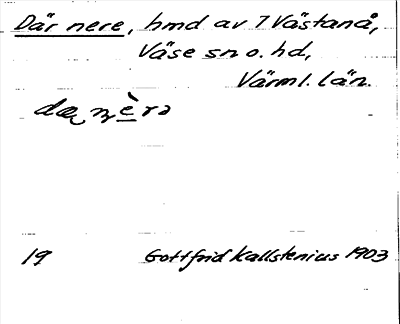 Där nere, hmd av 7 Västanå,
Väse sn o. hd,
Värml. län.
dæɳèrə
19 Gottfrid Kallstenius 1903